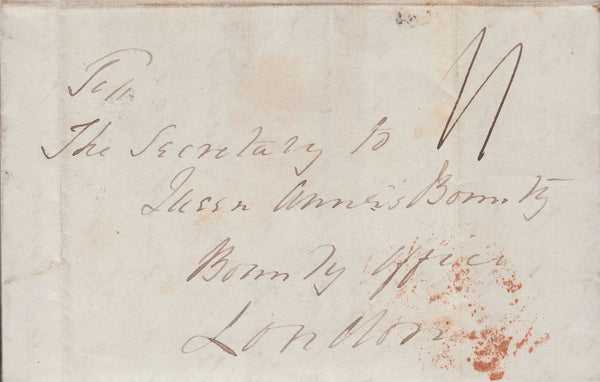 To
The Secretary to
Queen Anne's Bounty
Bounty Office
London
11